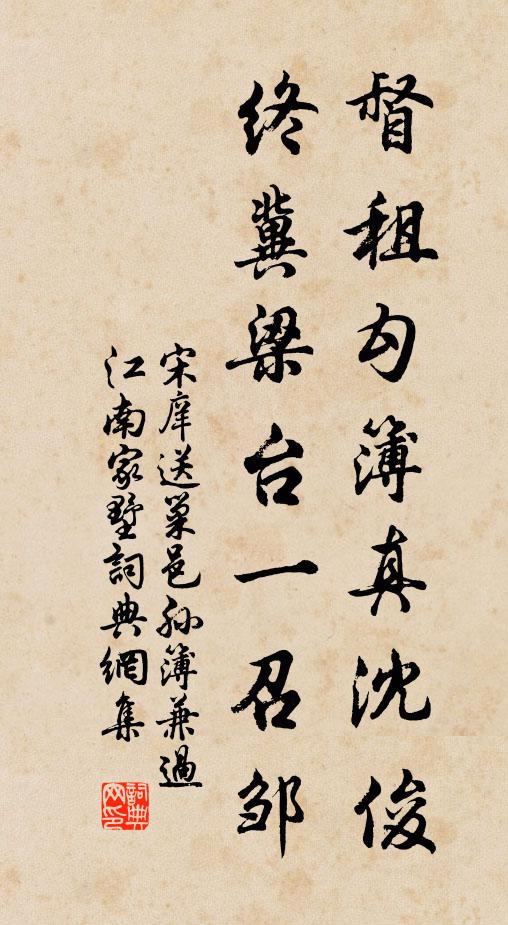 督租勾簿真沈俊
终冀梁台一召邹
宋庠送巢邑孙簿兼過
江南家墅詞典網集
詞典网印